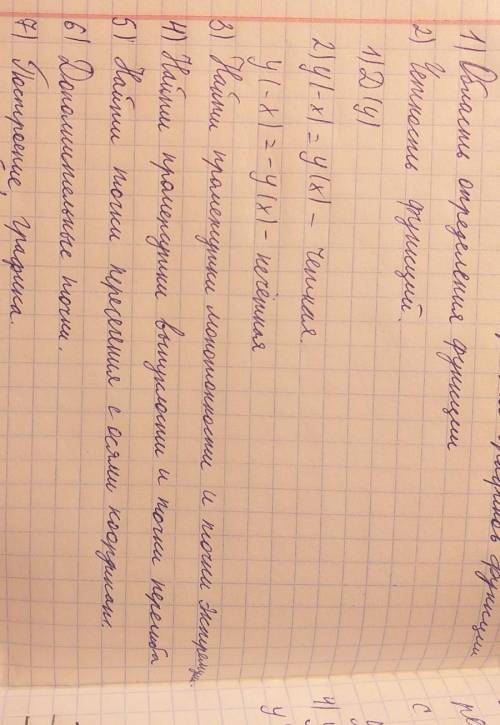 графиков функции
1) Область определения функции
2) Четность функций.
1) D(y)
2) y(-x) = y(x) - четная.
y(-x) = -y(x) - нечётная
3) Найти промежутки монотонности и точки экстремума.
4) Найти промежутки выпуклости и точки перегиба
5) Найти точки пересечения с осями координат.
6) Дополнительные точки.
7) Построение, графика.